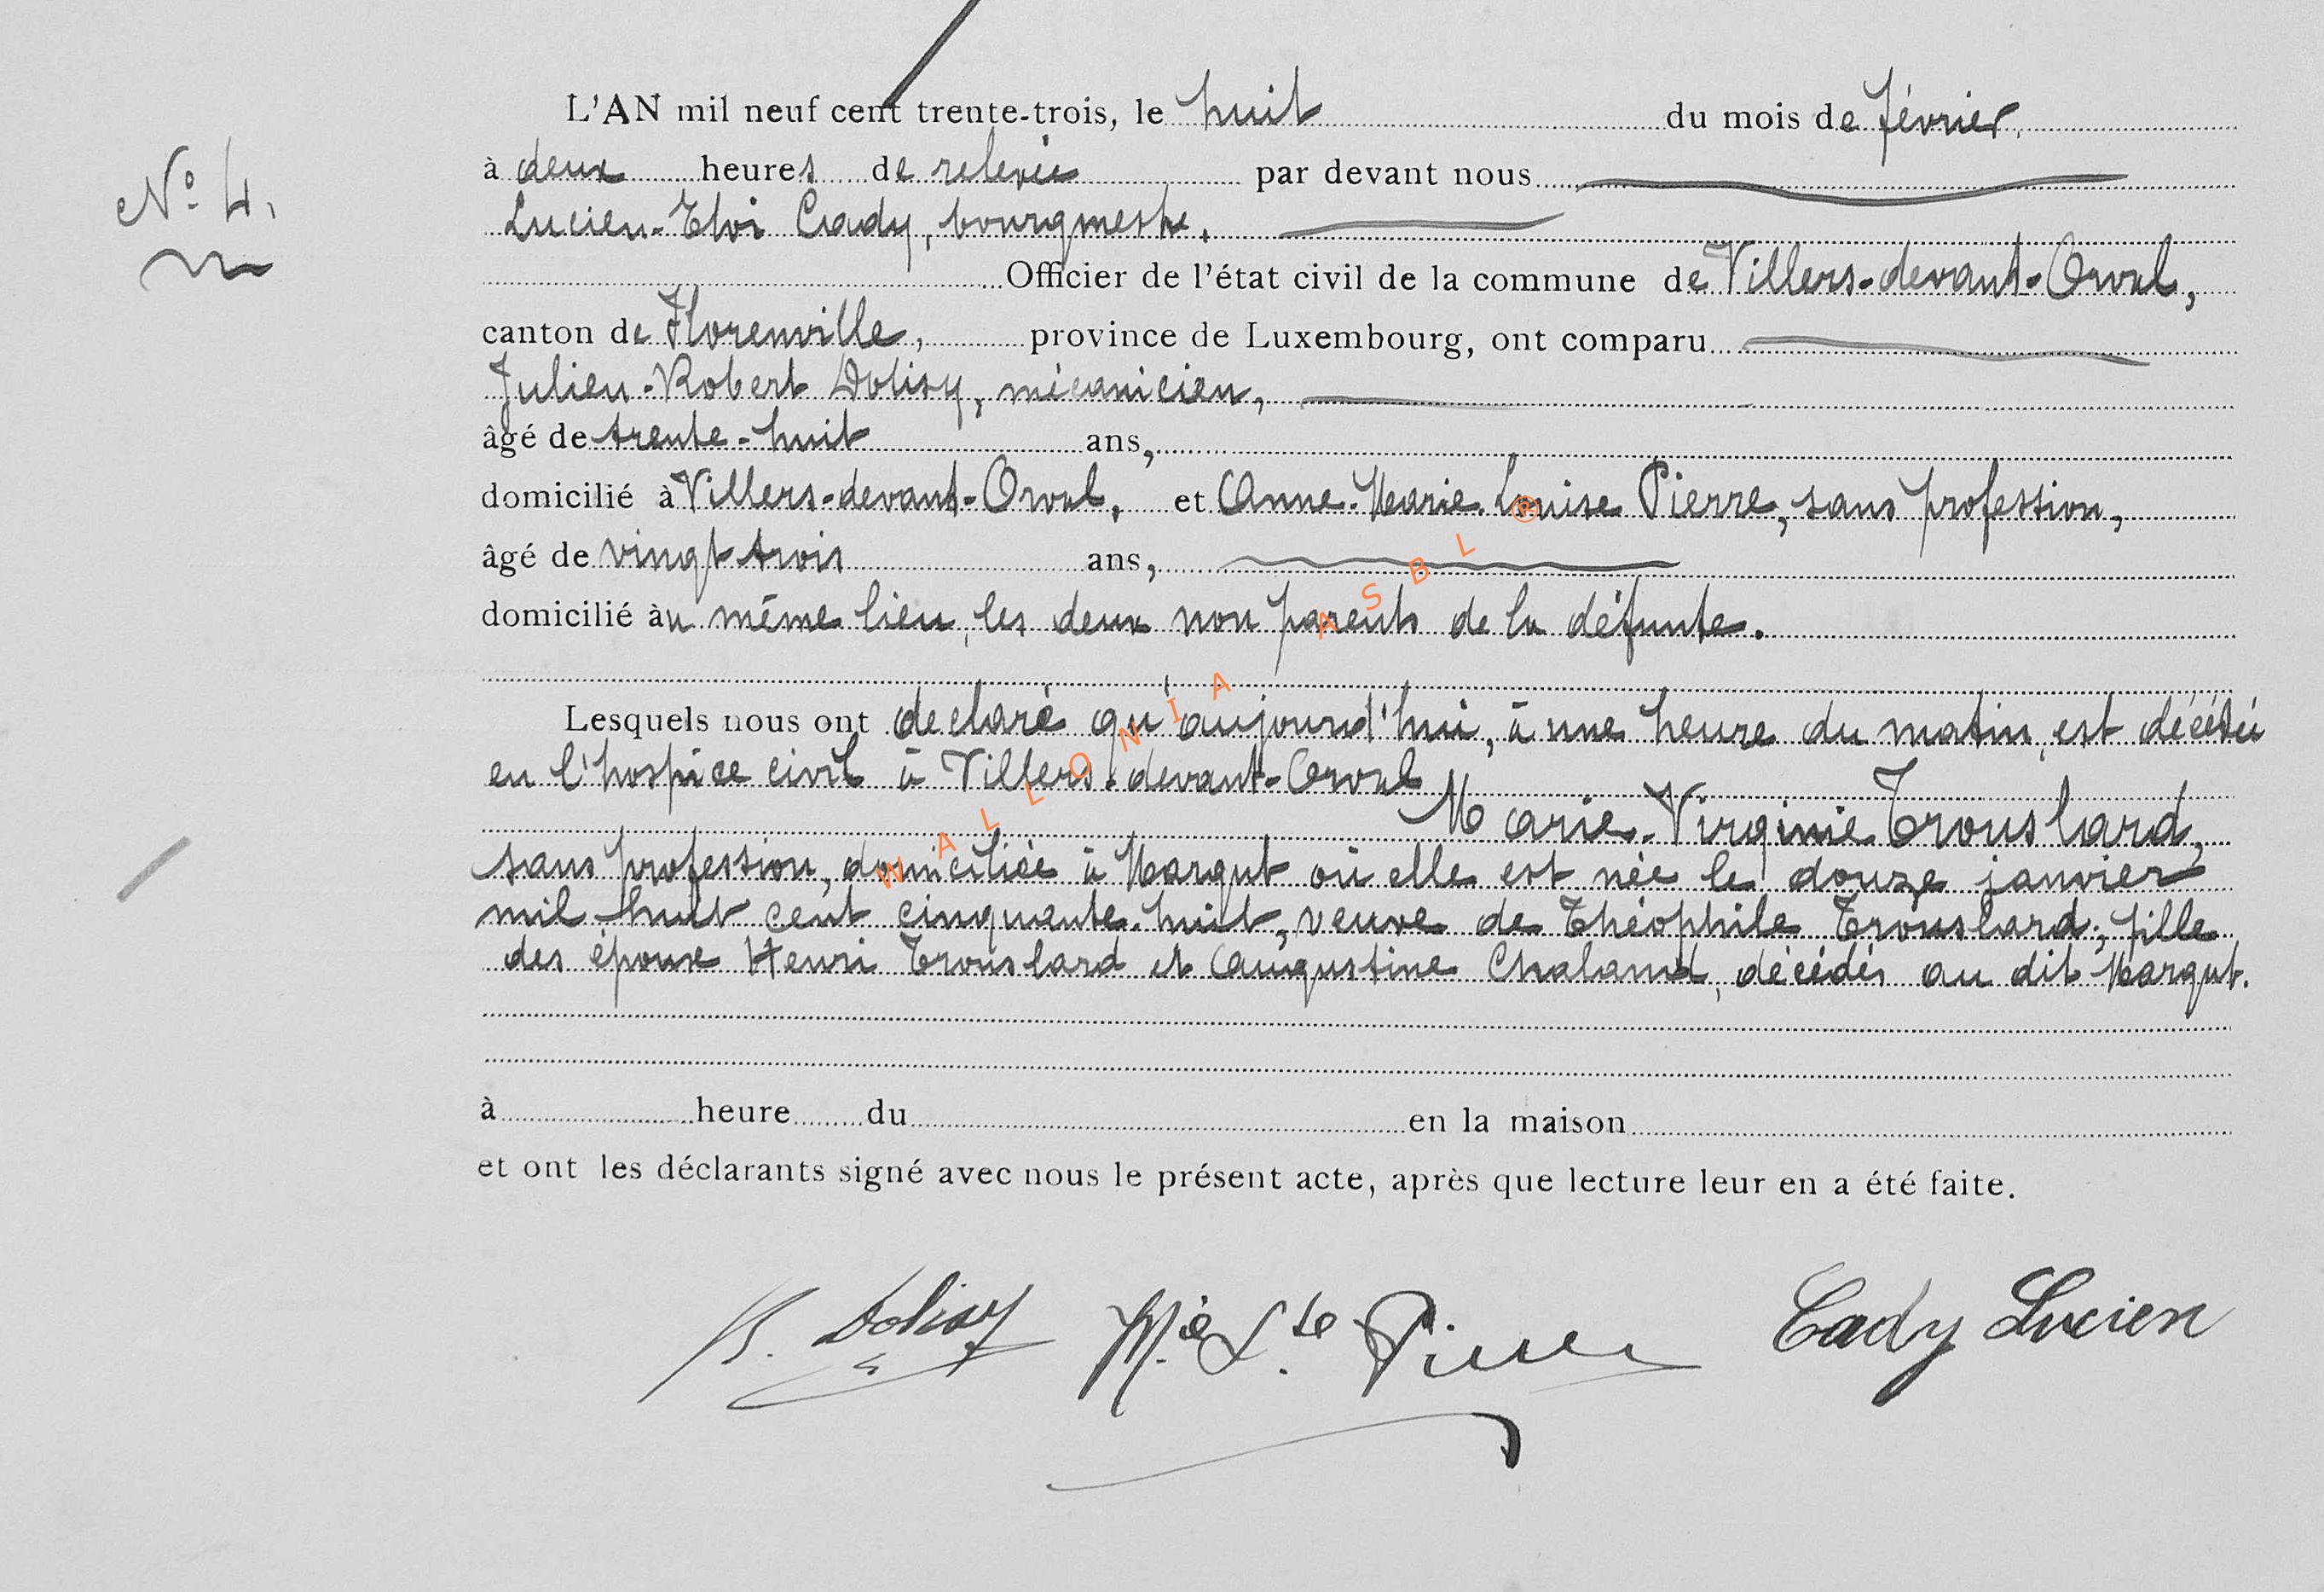 L'AN mil neuf cent trente-trois, le huit du mois de février,
N° 4.
à deux heures de relevée par devant nous
Lucien-Eloi Cady, bourgmestre,
Officier de l'état civil de la commune de Villers-devant-Orval,
canton de Florenville, province de Luxembourg, ont comparu
Julien-Robert Dolisy, mécanicien,
âgé de trente-huit ans,
domicilié à Villers-devant-Orval, et Anne-Marie-Louise Pierre, sans profession,
âgé de vingt trois ans,
domicilié au même lieu, les deux non parents de la défunte.
Lesquels nous ont declaré qu'aujourd'hui, à une heure du matin, est décédée
en l'hospice civil à Villers-devant-Orval
Marie-Virginie Trouslard,
sans profession, domiciliée à Margut où elle est née le douze janvier
mil huit cent cinquante-huit, veuve de Théophile Trouslard; fille
des époux Henri Trouslard et Augustine Chaland, décédés au dit Margut.
à heure du en la maison
et ont les déclarants signé avec nous le présent acte, après que lecture leur en a été faite.
R. Dolisy M.ie L.se Pierre Cady Lucien
WALLONIA ASBL ®